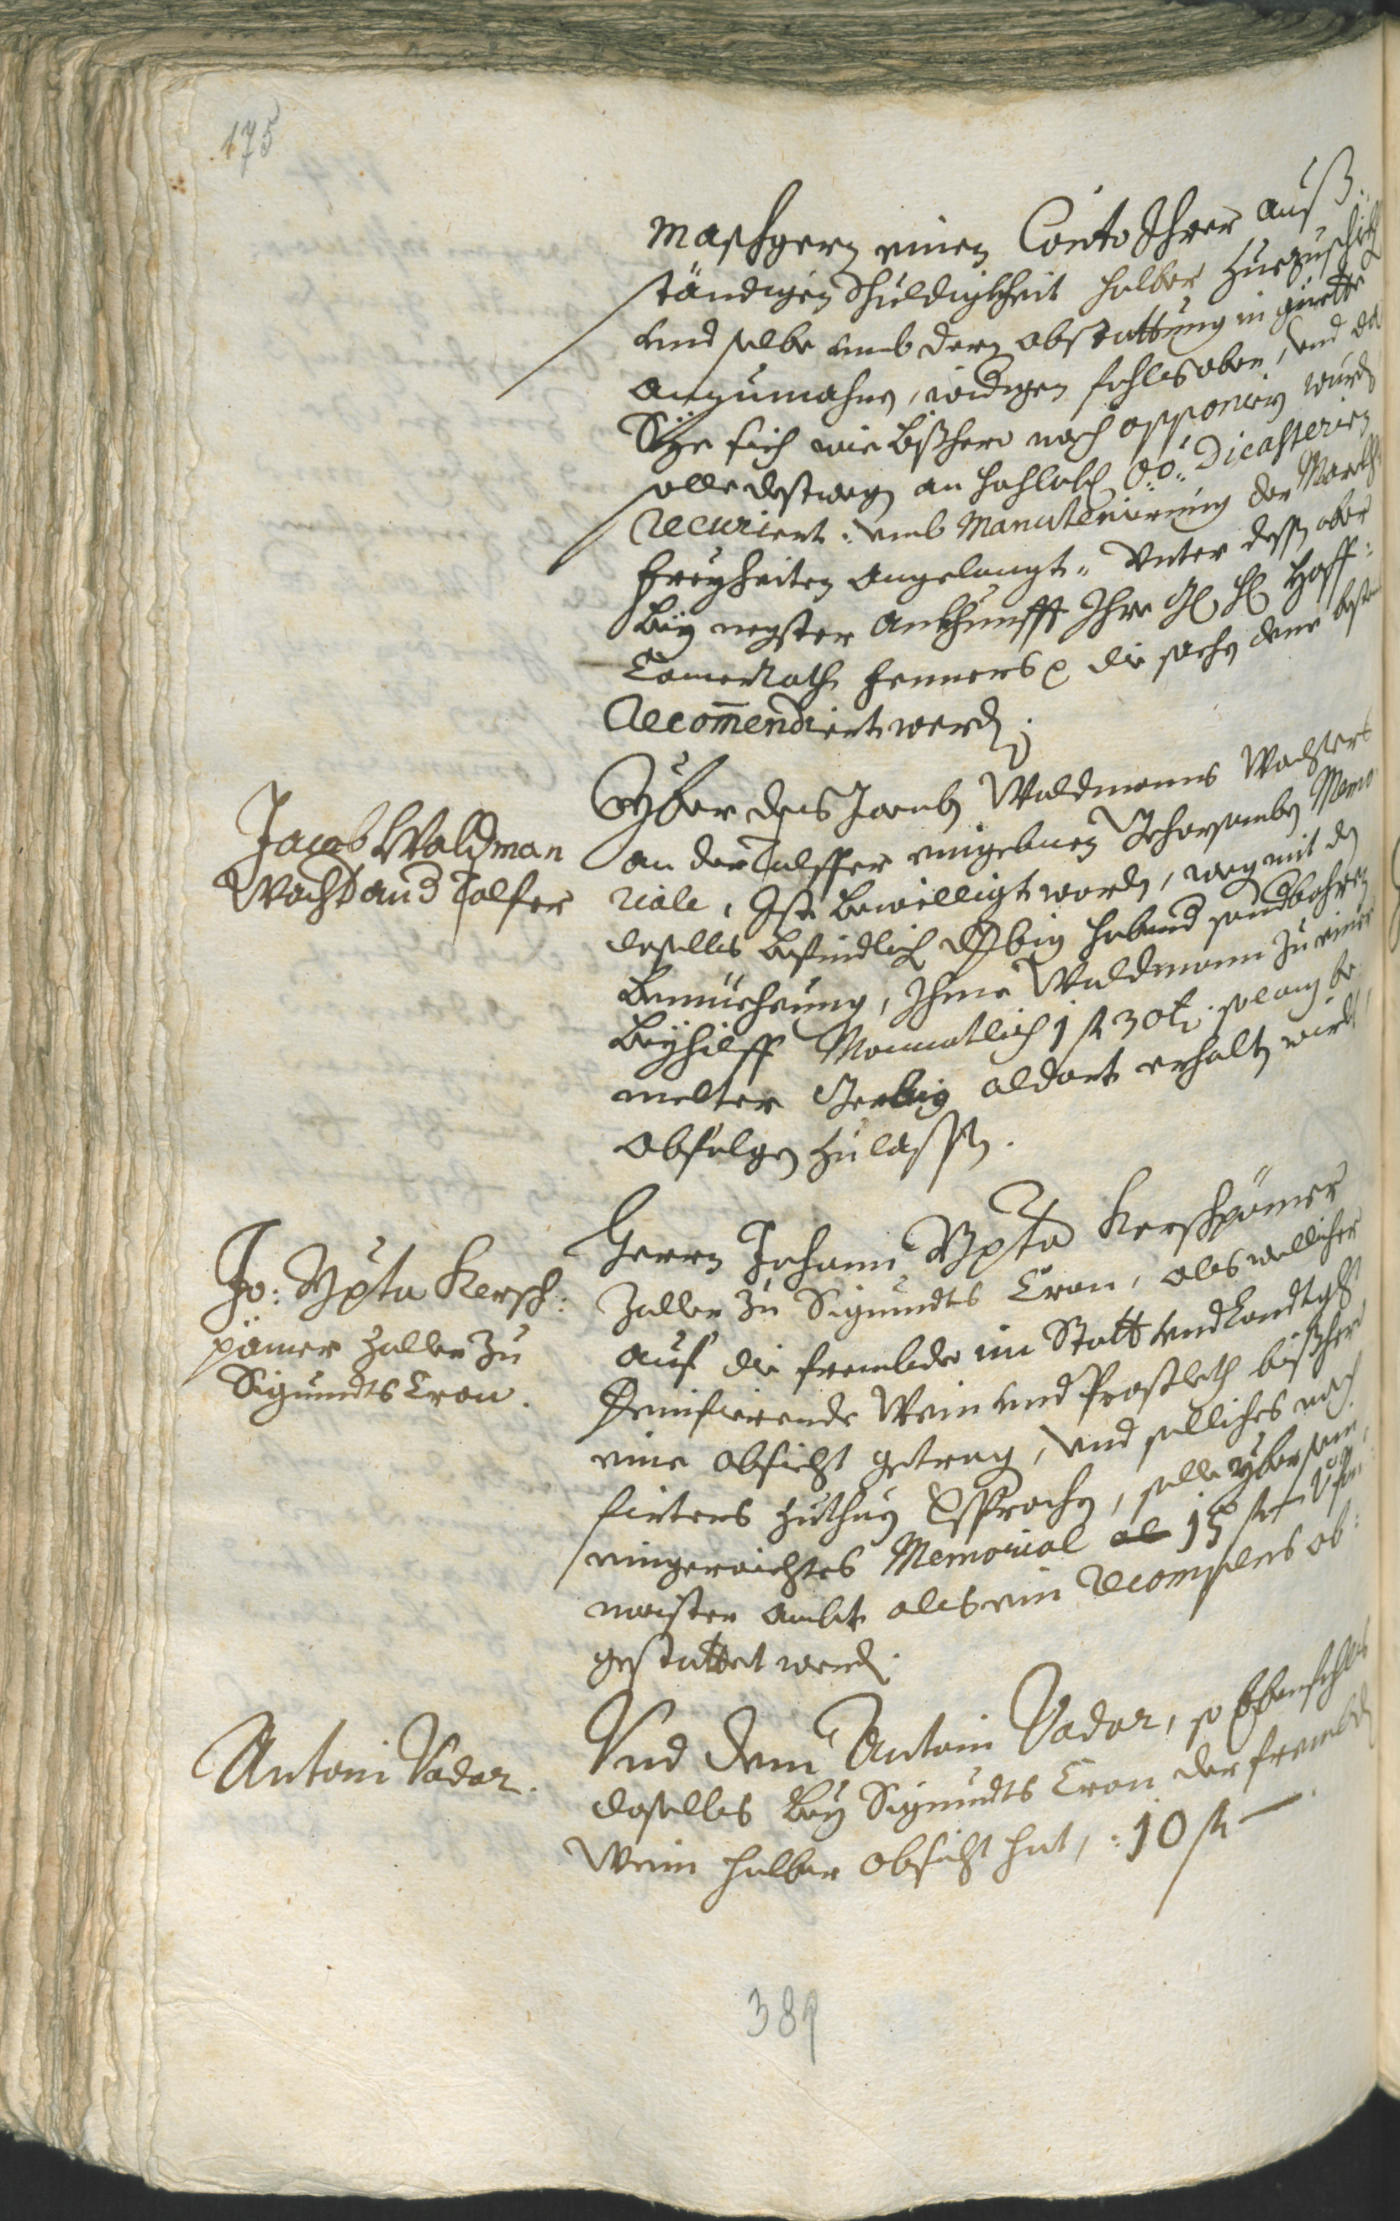 175
maschgern einen Conto Ihrer auß
ständigen Schuldigkheit halber zuezuschickh
und selbe umb dern abstattung in güette
anzumahnen, widrigen fahls aber, und da
Sye sich wie bißhero noch opponiern wurden
solle destwegen an hochlobl: O:Ö: Dicasterien
recuriert: umb Manutenierung der Marckhts
freyheiten angelangt. Unter dessen aber
bey negster ankhunfft Ihro Hoff:
Camer Rath Fenners die sachen deme besten
Recommendiert werden;
Jacob Waldman
Wacht an d Talfer
Yber des Jacoben Waldmanns Wachters
an der Talffer eingebnen gehorsamben Memo
riale, Ist bewilligt worden, wegen mit den
daselbs befindlich habend
bemüehung, Ihme Waldmann zu einer
Beyhilff Monnatlich 1 fl 30 kr: solang be
melter aldort erhalten wird
abfolgen zulassen.
Jo: Bpta Kersch:
pämer Zoller zu
Sigmundts Cron.
Herrn Johann Bpta Kerschpämer
Zoller zu Sigmundts Cron, als welicher
auf die frembde im Statt und Landtgcht
einfierende Wein und Praßleth bißhero
eine obsicht getragen, und solliches noch
firters zuthuen versprochen, solle yber sein
eingeraichtes Memorial 15 fl
maister ambt als ein recompens ab:
gestattet werden.
Antoni Vadar.
Und dem Antoni Vadar, so Ebenfahls
daselbs bey Sigmundts Cron der frembden
Wein halber obsicht hat, : 10 fl —
389